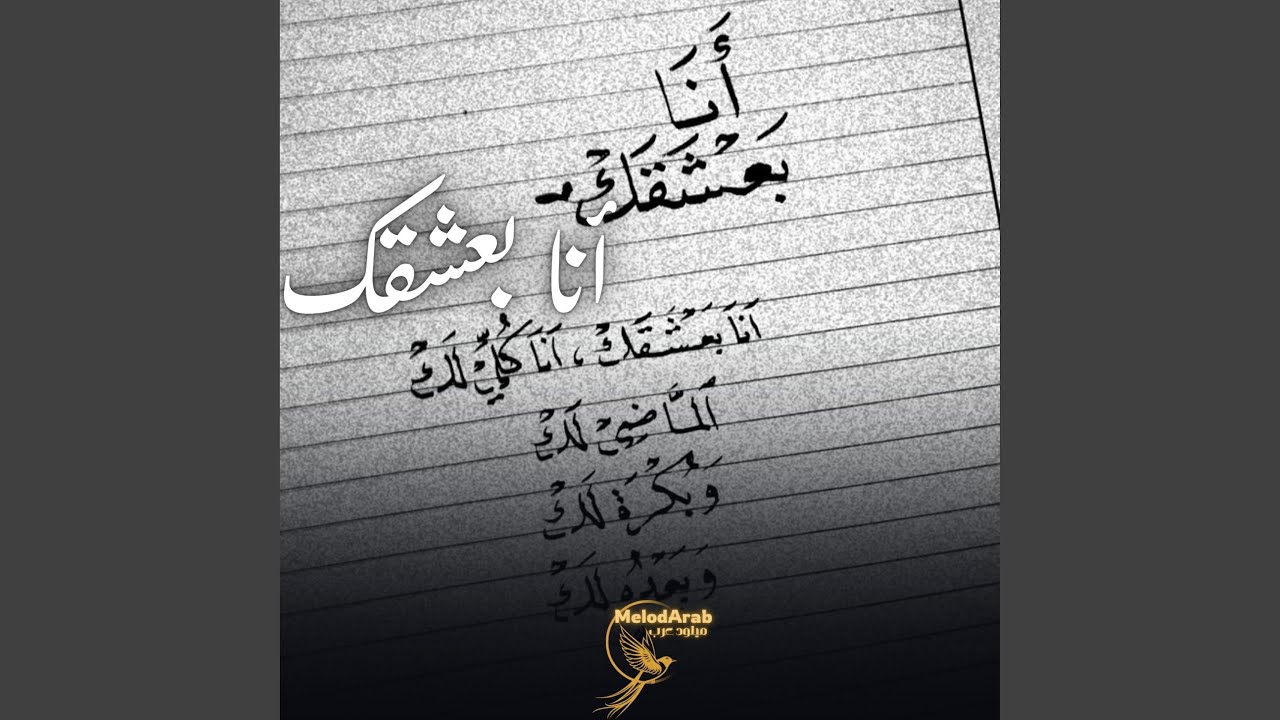 أَنَا
بَعْشَقَكْ
أنا بعشقك
اَنَا بَعْشَقَكْ ، اَنَا كُلِّيْ لَكْ
اَلْمَاضِيْ لَكْ
وَبُكْرَةْ لَكْ
وَبَعْدُهْ لَكْ
MelodArab
ميلود عرب